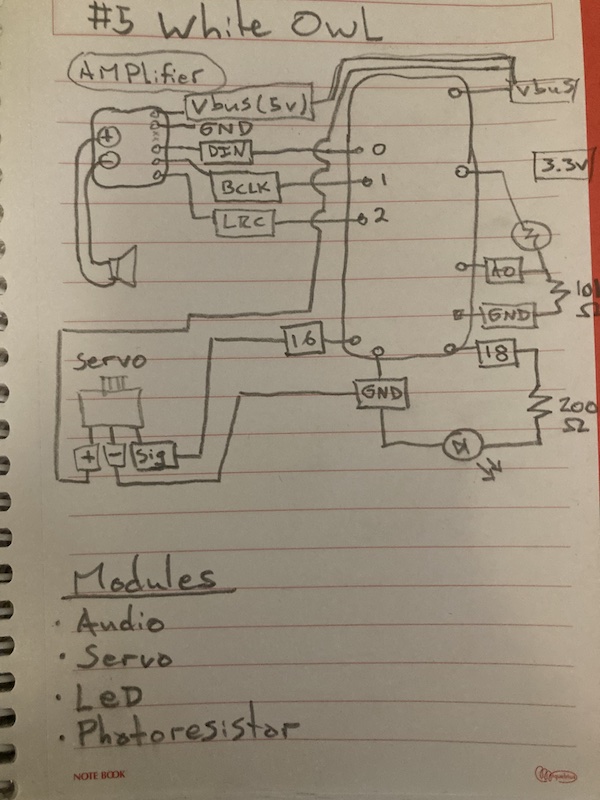 #5 White Owl
AMPlifier
Vbus (5v)
GND
DIN
BCLK
LRC
0
1
2
Vbus
3.3v
A0
GND
16
18
GND
200
Ω
Servo
+
-
Sig
Modules
· Audio
· Servo
· LeD
· Photoresistor
NOTE BOOK